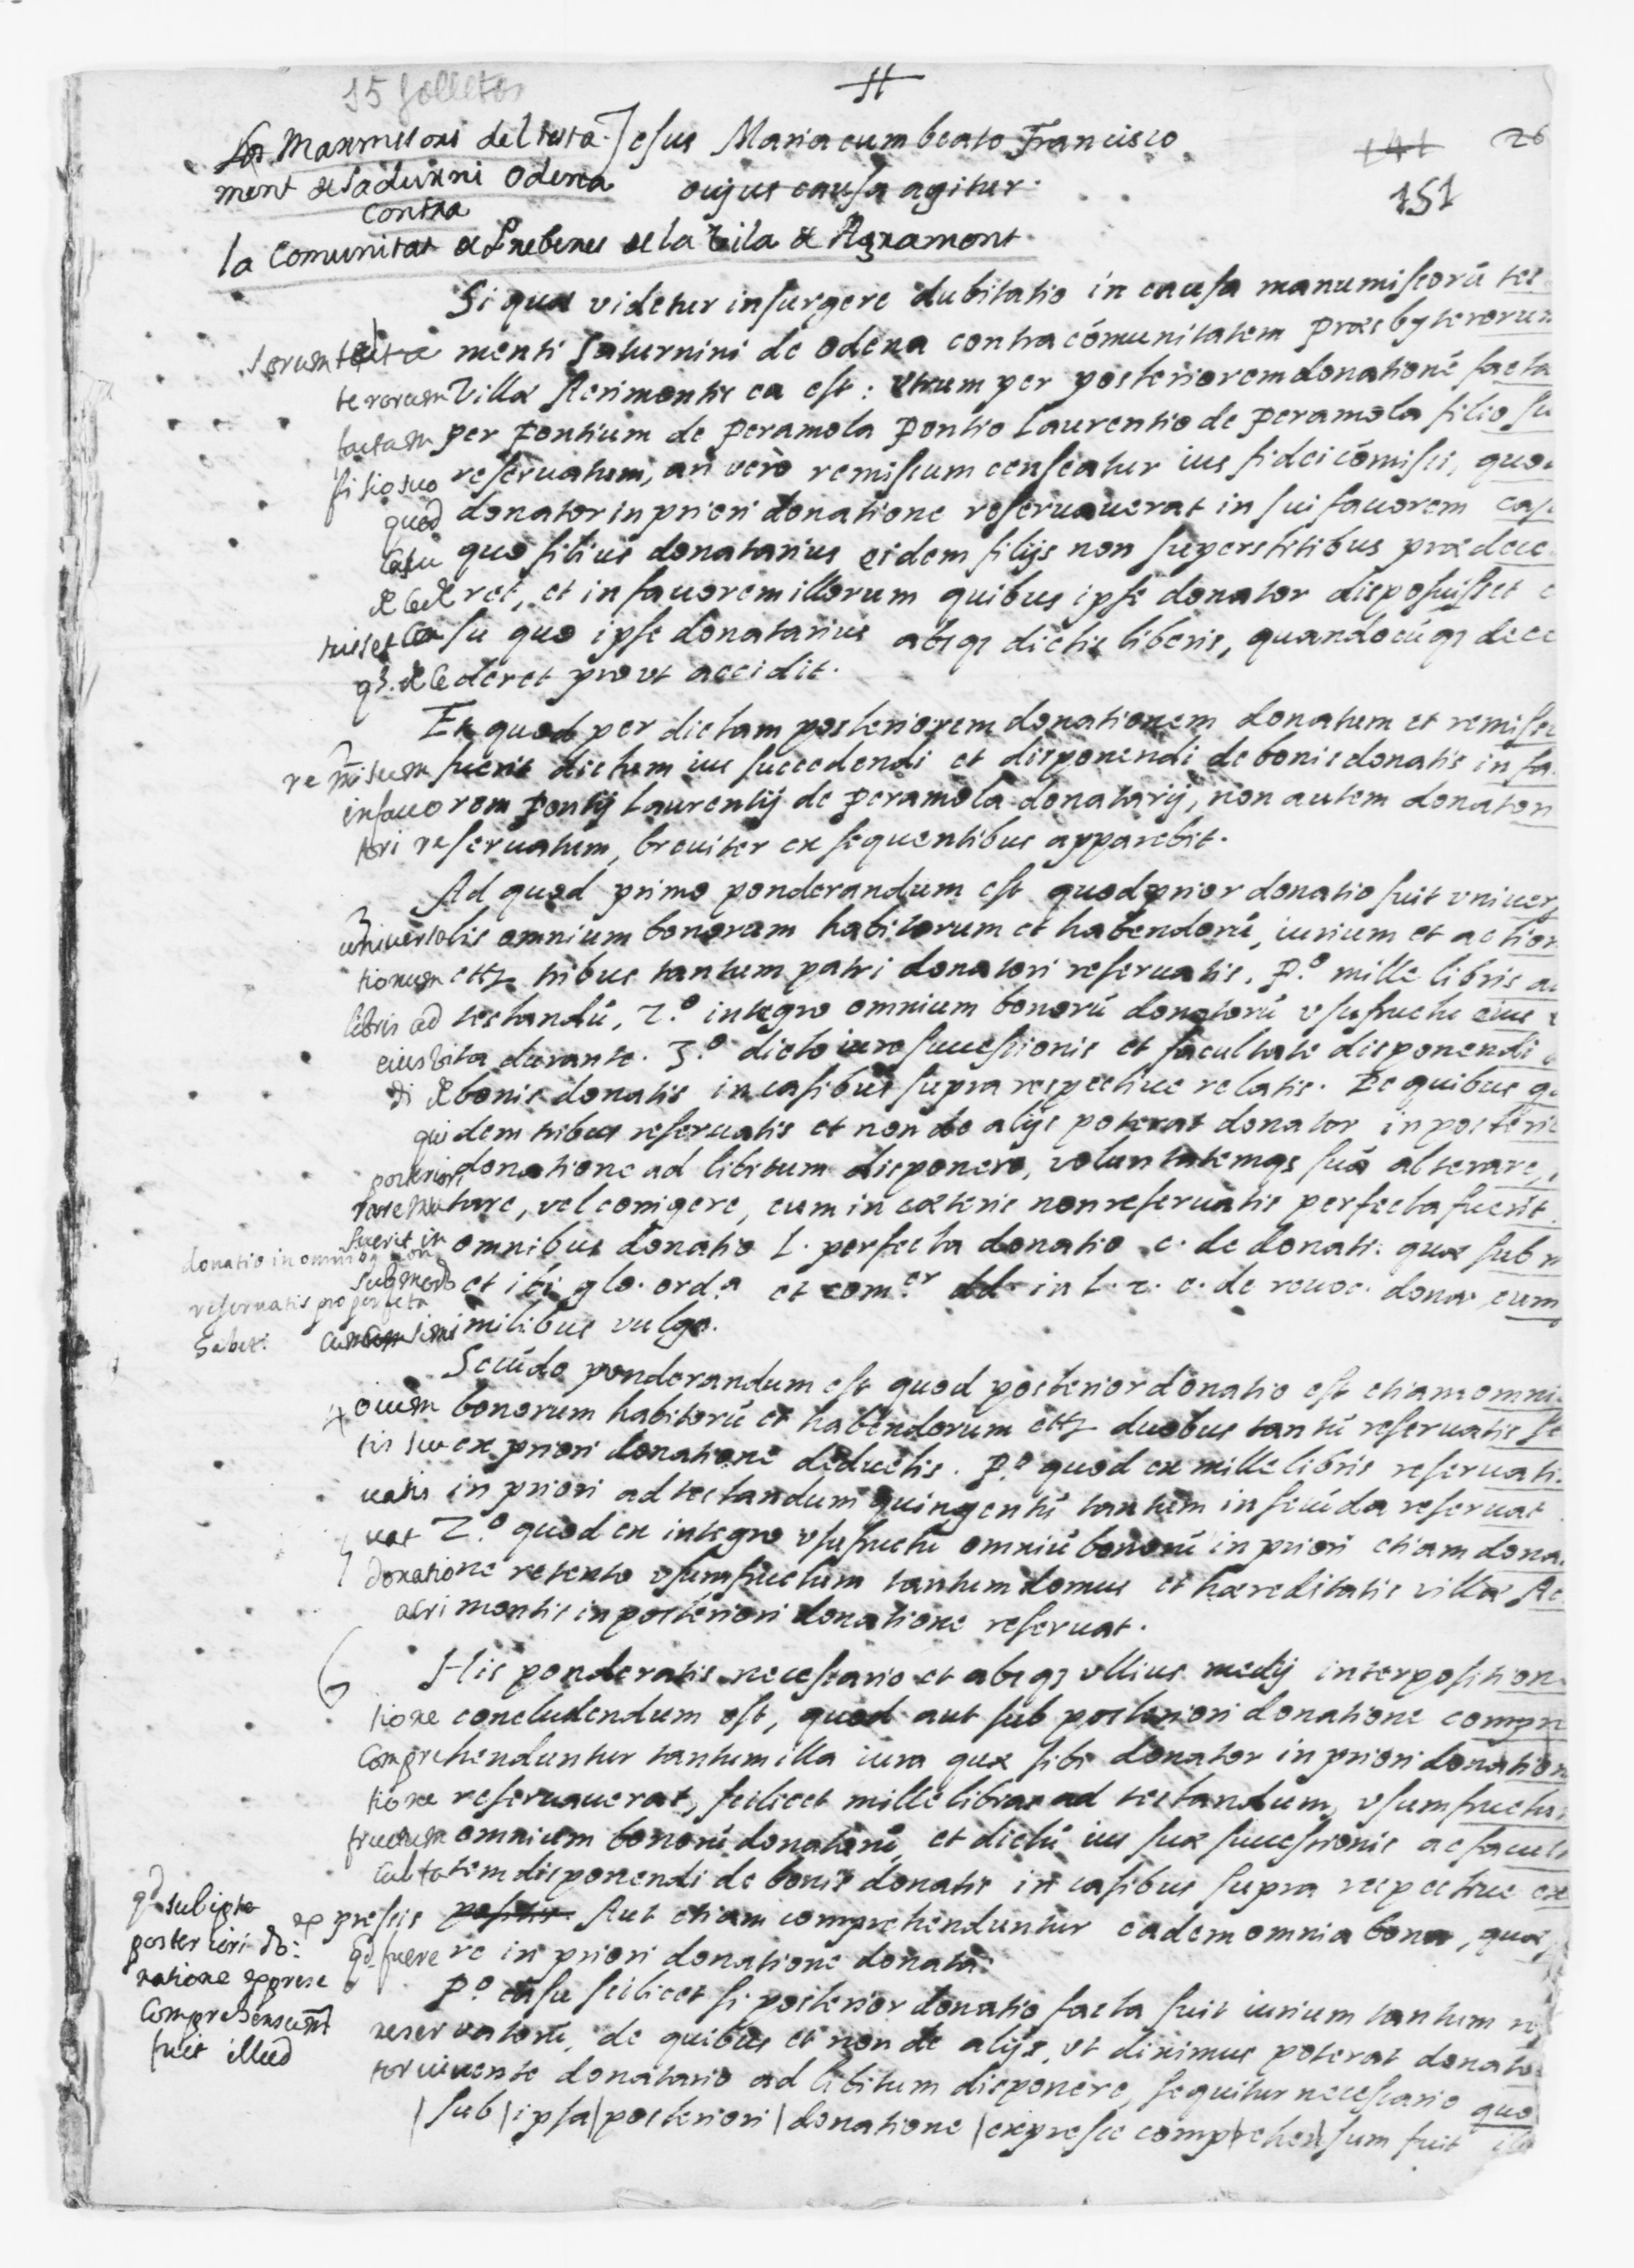 15 folletos
Los Marmessors del testa-
ment de Sadurni Odena
contra
la Comunitat de Preberes de la Vila de Agramont
Jesus Maria cum beato Francisco
cujus causa agitur.
141 26
151
Si qua videtur insurgere dubitatio in causa manumissorũ tes
sorum testa menti Saturnini de Odena contra cõmunitatem præsbyterorum
terorum Villæ Acrimontis ea est: Utrum per posteriorem donationẽ facta
factam per Pontium de Peramola Pontio Laurentio de Peramola filio su
filio suo reservatum, an vero remissum censeatur ius fideicõmissi, quod
quod donator in priori donatione reservaverat in sui favorem casu
casu quo filius donatarius eidem filijs non superstitibus prædece
dece ret, et in favorem illorum quibus ipse donator disposuisset c
uisset casu quo ipse donatarius absq3 dictis liberis, quandocũq3 dece
q3. decederet prout accidit.
Et quod per dictam posteriorem donationem donatum et remiss
remissum fuerit dictum ius succedendi et disponendi de bonis donatis in fa
in favorem Pontij Laurentij de Peramola donatarij, non autem donatori
tori reservatum, breviter ex sequentibus apparebit.
Ad quod primo ponderandum est quod prior donatio fuit univers
3 universalis omnium bonorum habitorum et habendorũ, iurium et action
tionum ett3 tribus tantum patri donatori reservatis. P.º mille libris ad
libris ad testandũ, 2.º integro omnium bonorũ donatorũ usufructu eius v
eius vita durante. 3.º dicto iure successionis et facultate disponendi
di de bonis donatis in casibus supra respective relatis. De quibus q
quidem tribus reservatis et non de alijs poterat donator in posteri
posteriori donatione ad libitum disponere, voluntatemq3 suã alterare,
rare mutare, vel corrigere, cum in cæteris non reservatis perfecta fuerit
fuerit in omnibus donatio l. perfecta donatio c. de donati: quæ sub m
sub modo et ibi glo. ord.ª et com.er dd. in l. 2. c. de revoc. dona cum
cum similibus vulga.
donatio in omnibq non
reservatis pro perfecta
habet:
Secũdo ponderandum est quod posterior donatio est etiam omni
4 nium bonorum habitorũ et habendorum ett3 duobus tantũ reservatis se
tis seu ex priori donatione deductis. P.º quod ex mille libris reservati
vatis in priori ad testandum quingentũ tantum in secũda reservat
vat 2.º quod ex integro usufructu omniũ bonorũ in priori etiam dona
5 donatione retento usumfructum tantum domus et hæreditatis villæ Ac
acrimontis in posteriori donatione reservat.
6 His ponderatis necessario et absq3 ullius medij interposition
tione concludendum est, quod aut sub posteriori donatione compre
comprehenduntur tantum illa iura quæ sibi donator in priori donation
tione reservaverat, scilicet mille libras ad testandum, usumfructu
fructum omnium bonorũ donatorũ, et dictũ ius suæ successionis ac facul
cultatem disponendi de bonis donatis in casibus supra respective ex
expressis positis. Aut etiam comprehenduntur eadem omnia bona, quæ
q fuere re in priori donatione donata.
P.º casu scilicet si posterior donatio facta fuit iurium tantum re
reservatorũ, de quibus et non de alijs, ut diximus poterat donato
tor vivente donatario ad libitum disponere, sequitur necessario quo
|sub|ipsa|posteriori|donatione|expresse comprehensum fuit ill
qd sub ipsa
posteriori do:
natione exprese
Comprehensum
fuit illud